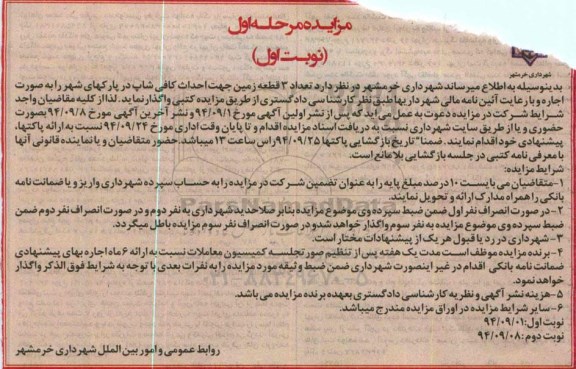 مزایده مرحله اول
(نوبت اول)
شهرداری خرمشهر
بدینوسیله به اطلاع میرساند شهرداری خرمشهر در نظر دارد تعداد ۳ قطعه زمین جهت احداث کافی شاپ در پارکهای شهر را به صورت
اجاره و با رعایت آئین نامه مالی شهرداریها طبق نظر کارشناسی دادگستری از طریق مزایده کتبی واگذار نماید. لذا از کلیه متقاضیان واجد
شرایط شرکت در مزایده دعوت به عمل می آید که پس از نشر اولین آگهی مورخ ۹۴/۰۹/۱ و نشر آخرین آگهی مورخ ۹۴/۰۹/۸ بصورت
حضوری و یا از طریق سایت شهرداری نسبت به دریافت اسناد مزایده اقدام و تا پایان وقت اداری مورخ ۹۴/۰۹/۲۴ نسبت به ارائه پاکتها،
پیشنهادی خود اقدام نمایند. ضمنا" تاریخ بازگشایی پاکتها ۹۴/۰۹/۲۵ راس ساعت ۱۳ میباشد. حضور متقاضیان و یا نماینده قانونی آنها
با معرفی نامه کتبی در جلسه بازگشایی بلامانع است.
شرایط مزایده:
۱-متقاضیان می بایست ۱۰ درصد مبلغ پایه را به عنوان تضمین شرکت در مزایده را به حساب سپرده شهرداری واریز و یا ضمانت نامه
بانکی را همراه مدارک ارائه و تحویل نمایند.
۲-در صورت انصراف نفر اول ضمن ضبط سپرده وی موضوع مزایده بنابر صلاحدید شهرداری به نفر دوم و در صورت انصراف نفر دوم ضمن
ضبط سپرده وی موضوع مزایده به نفر سوم واگذار خواهد شد و در صورت انصراف نفر سوم مزایده باطل میگردد.
۳-شهرداری در رد یا قبول هر یک از پیشنهادات مختار است.
۴-برنده مزایده موظف است مدت یک هفته پس از تنظیم صورتجلسه کمیسیون معاملات نسبت به ارائه ۶ ماه اجاره بهای پیشنهادی
ضمانت نامه بانکی اقدام در غیر اینصورت شهرداری ضمن ضبط وثیقه مورد مزایده را به نفرات بعدی با توجه به شرایط فوق الذکر واگذار
خواهد نمود.
۵-هزینه نشر آگهی و نظریه کارشناسی دادگستری بعهده برنده مزایده می باشد.
۶-سایر شرایط مزایده در اوراق مزایده مندرج میباشد.
نوبت اول: ۹۴/۰۹/۰۱
نوبت دوم: ۹۴/۰۹/۰۸
روابط عمومی و امور بین الملل شهرداری خرمشهر